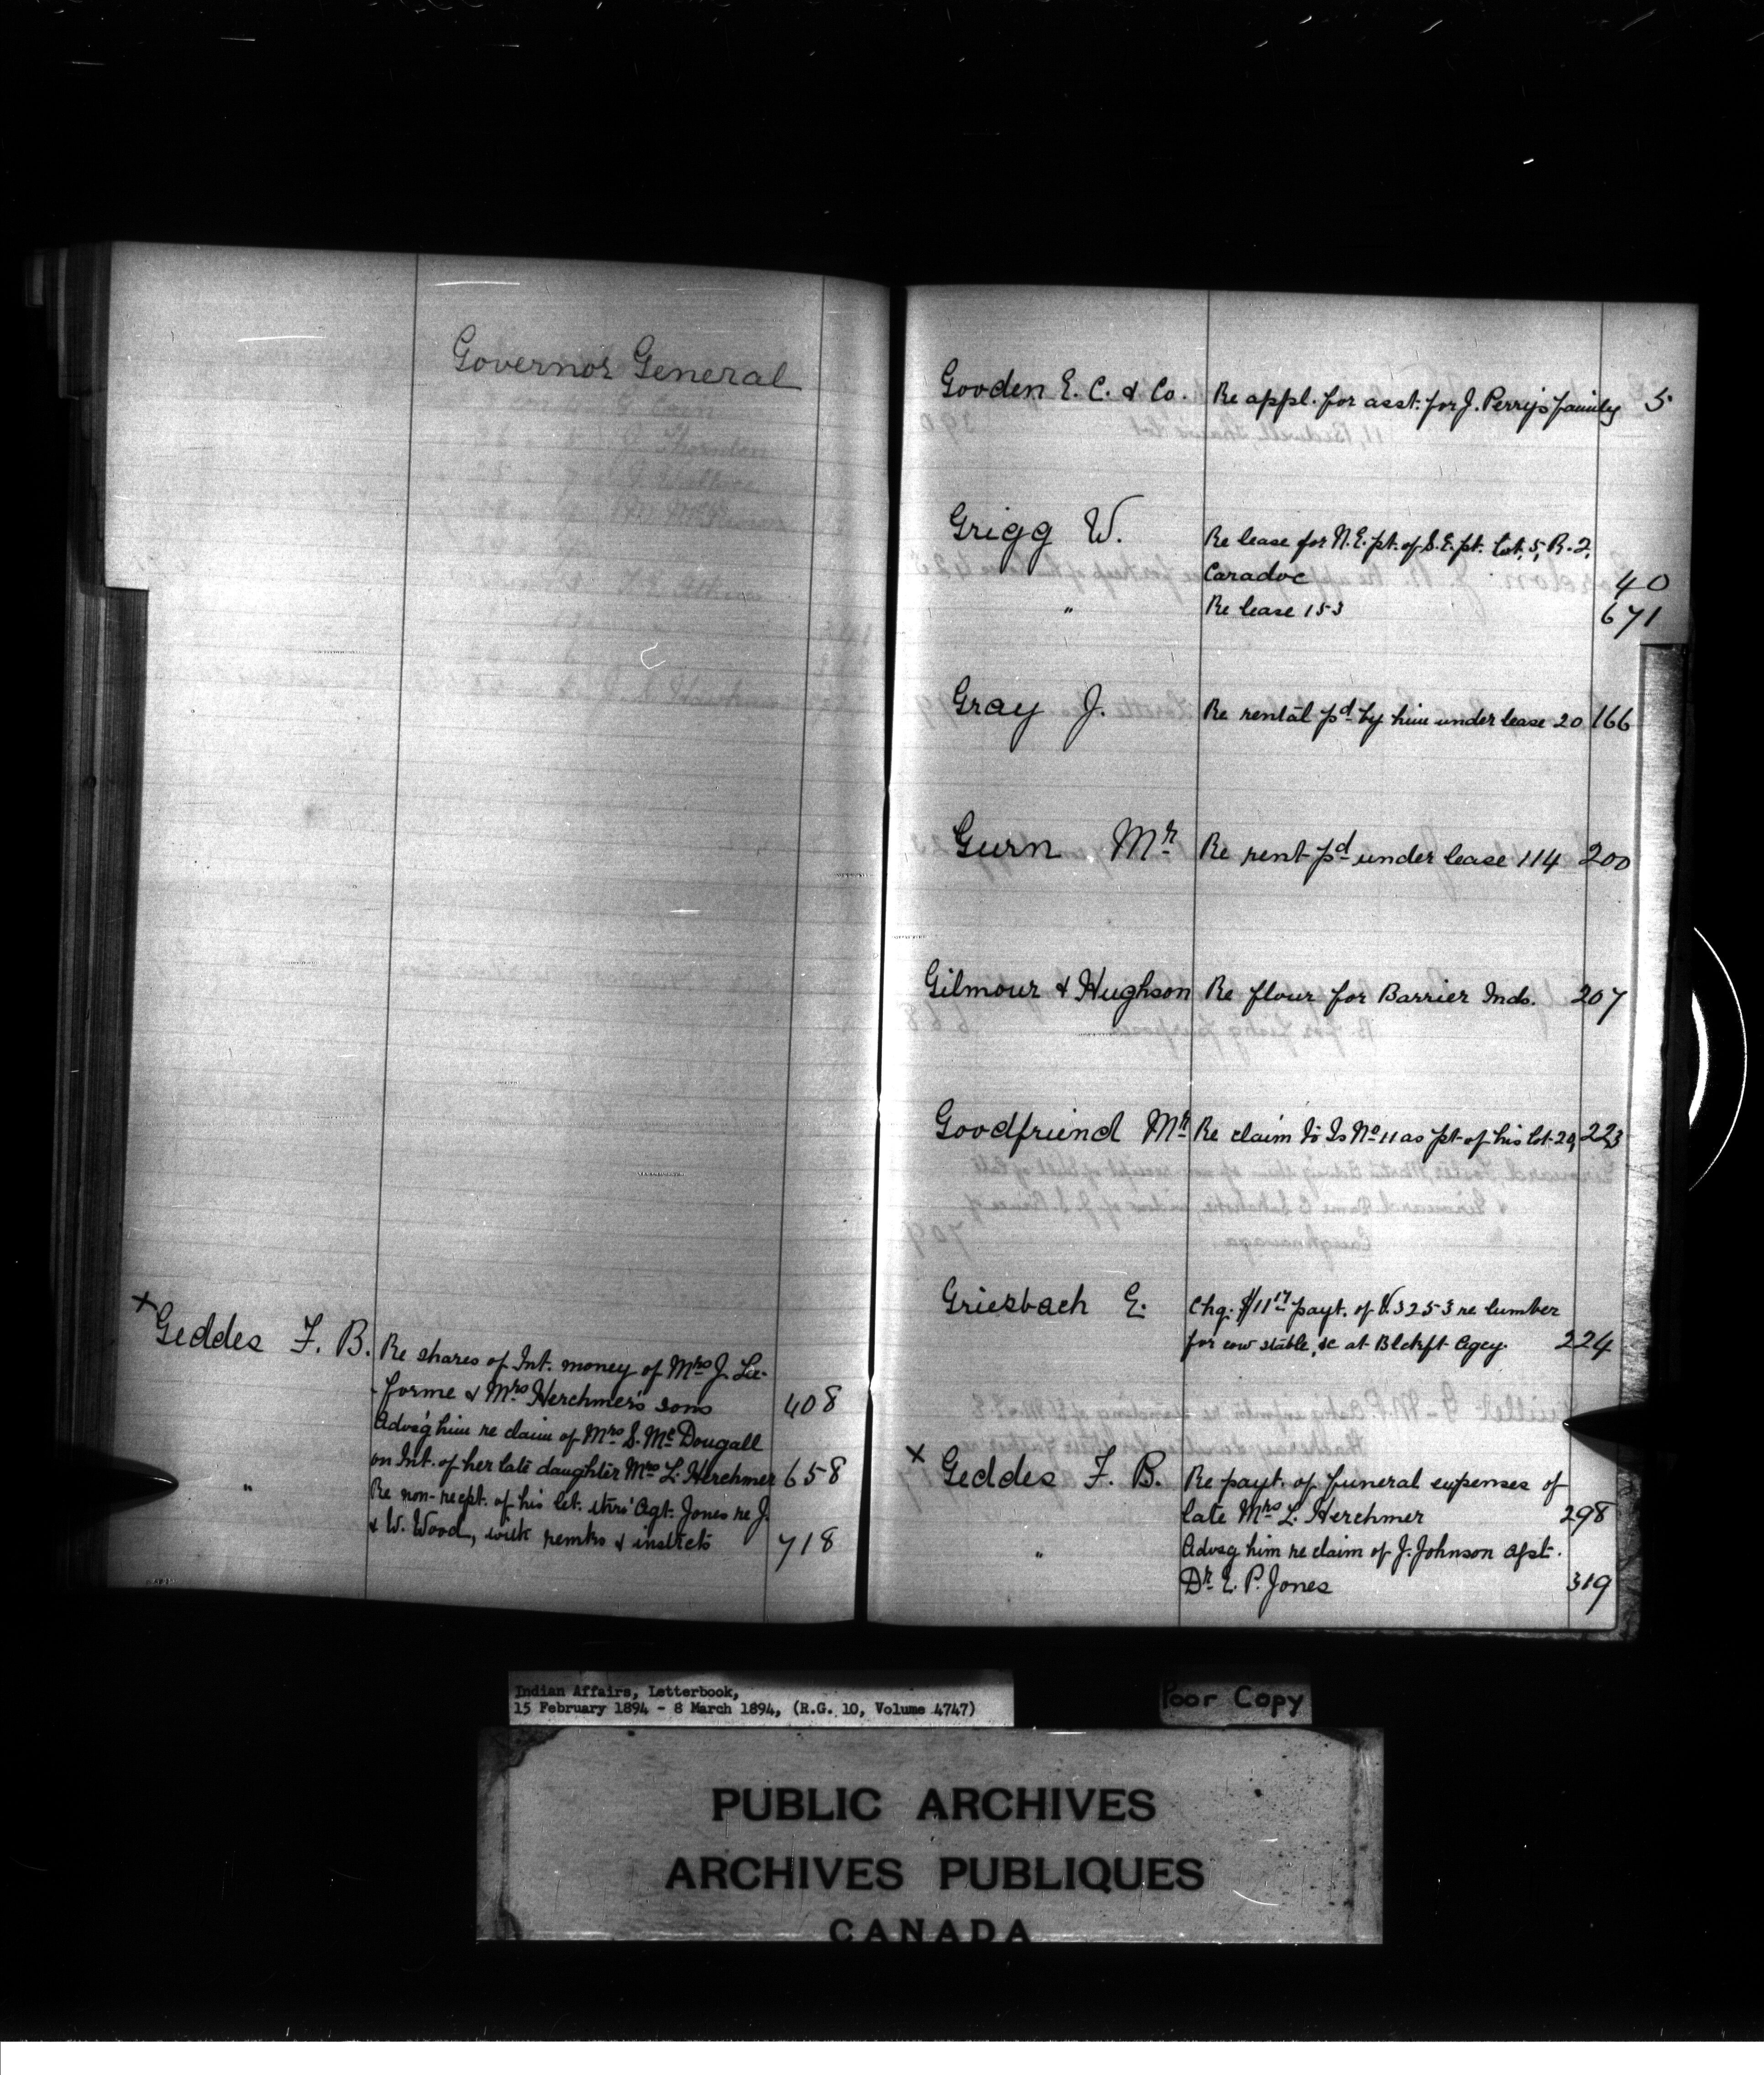 Governor General
× Geddes F. B. Re shares of Int. money of Mrs J. La-
forme & Mrs Herchmer's sons 408
Advs'g him re claim of Mrs S. Mc Dougall
on Int. of her late daughter Mrs L. Herchmer 658
" Re non-recpt. of his let. thro' Agt. Jones re J.
& W. Wood, with remks & instrcts 718
Gooden E. C. & Co. Re appl. for asst. for J. Perry's family 5
Grigg W. Re lease for N.E. pt. of S.E. pt. Lot, 5, R. 2,
Caradoc 40
" Re lease 153 671
Gray J. Re rental pd by him under lease 20 166
Gurn Mr Re rent pd under lease 114 200
Gilmour & Hughson Re flour for Barrier Inds. 207
Goodfriend Mr Re claim to Is No 11 as pt of his lot 29, 223
Griesbach E. Chq. $11 17 payt. of V. 3253 re lumber
for cow stable, &c at Blckft Agcy. 224
× Geddes F. B. Re payt. of funeral expenses of
late Mrs L. Herchmer 298
" Advsg him re claim of J. Johnson agst.
Dr. E. P. Jones 319
Indian Affairs, Letterbook,
15 February 1894 - 8 March 1894, (R.G. 10, Volume 4747)
Poor Copy
PUBLIC ARCHIVES
ARCHIVES PUBLIQUES
CANADA